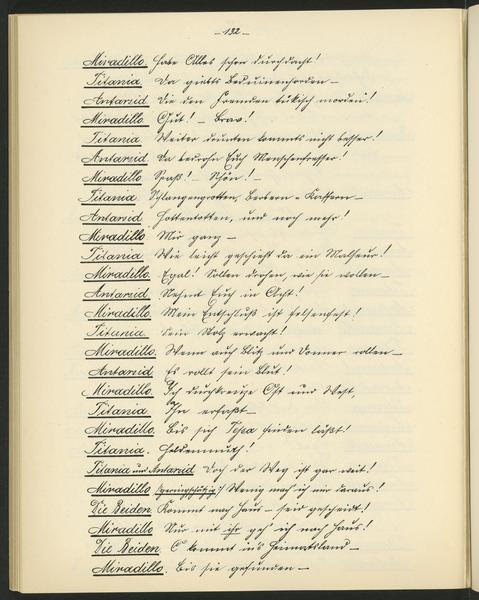 - 132 -
Miradillo. Habe Alles schon durchdacht!
Titania. Da giebts Beduinenhorden -
Antarsid. Die den Fremden tükisch morden!
Miradillo. Gut! - Brav!
Titania. Weiter drunten kommts nicht besser!
Antarsid. Da bedrohn Euch Menschenfresser!
Miradillo. Spaß! - Schön! -
Titania. Schlangengrotten, Berbern - Kaffern -
Antarsid. Hottentotten, und noch mehr!
Miradillo. Mir ganz -
Titania. Wie leicht geschieht da ein Malheur!
Miradillo. Egal! Sollen drohen, wie sie wollen -
Antarsid. Nehmt Euch in Acht!
Miradillo. Mein Entschluß ist felsenfest!
Titania. Sein Stolz erwacht!
Miradillo. Wenn auch Blitz und Donner rollen -
Antarsid. Es rollt sein Blut!
Miradillo. Ich durchkreuze Ost und West,
Titania. Ihn erfaßt -
Miradillo. Bis sich finden läßt!
Titania. Heldenmuth!
Titania und Antarsid. Doch der Weg ist gar weit!
Miradillo (geringschätzig!) Wenig mach ich mir daraus!
Die Beiden. Kommt nach Haus - seid gescheidt!
Miradillo. Nur mit ihr geh' ich nach Haus!
Die Beiden. O kommt in's Heimatsland -
Miradillo. Bis sie gefunden -